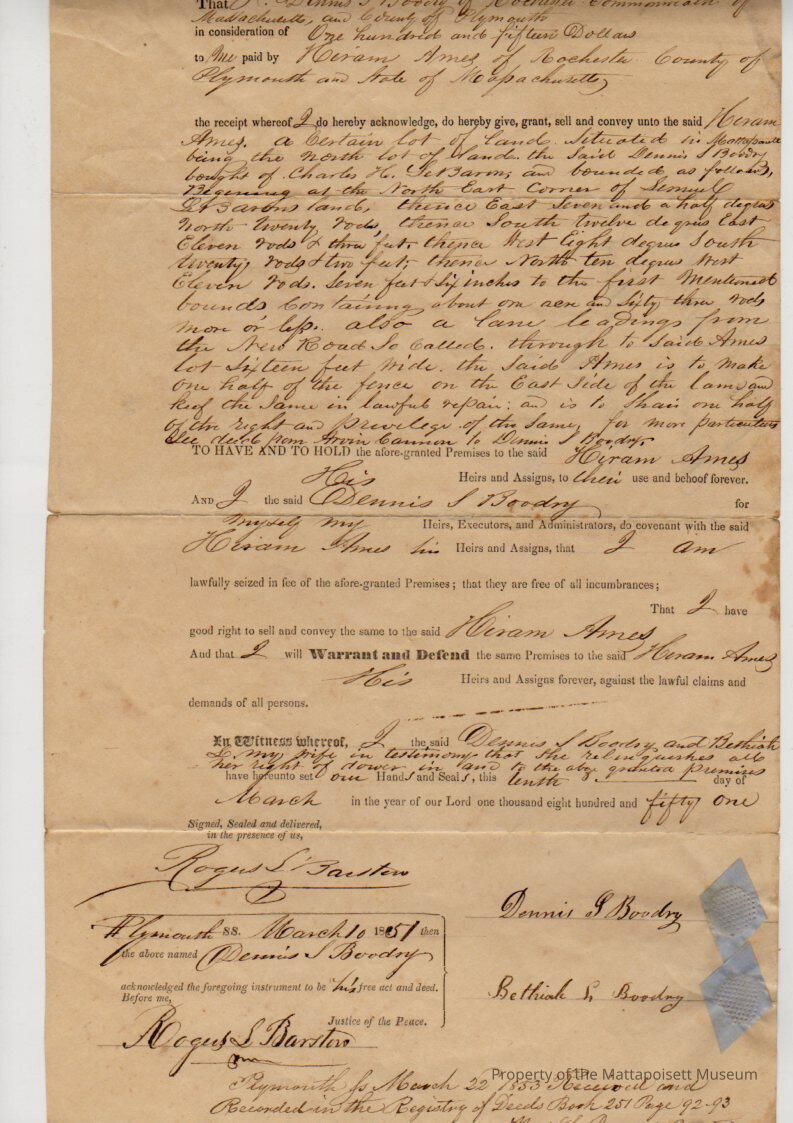 That I. Dennis S Boodry of Rochester Commonwealth of
Massachusetts, and County of Plymouth
in consideration of One hundred and fifteen Dollars
to Me paid by Hiram Ames of Rochester County of
Plymouth and State of Massachusetts
the receipt whereof I do hereby acknowledge, do hereby give, grant, sell and convey unto the said Hiram
Ames. a Certain lot of land. Situated in Mattapoisett
being the North lot of land. the Said Dennis S Boodry
bought of Charles H. LeBaron, and bounded as follows,
Begining at the North East Corner of Lemuel
LeBarons land, thence East Seven and a half degrees
North twenty rods, thence South twelve degrees East
Eleven rods & three feet. thence West Eight degrees South
twenty rods & two feet; thence North ten degrees West
Eleven rods. Seven feet & Six inches to the first Mentioned
bounds Containing about one acre and Sixty three rods
more or less. also a lane leading from
the New Road So Called. through to Said Ames
lot Sixteen feet wide. the Said Ames is to make
one half of the fence on the East Side of the lane and
keep the Same in lawful repair; and is to Share one half
of the right and privilege of the Same, for more particulars
See deed from Arvin Cannon to Dennis S Boodry.
TO HAVE AND TO HOLD the afore-granted Premises to the said Hiram Ames
His Heirs and Assigns, to their use and behoof forever.
AND I the said Dennis S Boodry for
myself my Heirs, Executors, and Administrators, do covenant with the said
Hiram Ames his Heirs and Assigns, that I am
lawfully seized in fee of the afore-granted Premises; that they are free of all incumbrances;
That I have
good right to sell and convey the same to the said Hiram Ames
And that I will Warrant and Defend the same Premises to the said Hiram Ames
His Heirs and Assigns forever, against the lawful claims and
demands of all persons.
In Witness whereof, I the said Dennis S Boodry and Bethiah
L. my wife in testimony that she relinquishes all
her right of dower in and to the above granted premises
have hereunto set our Hands and Seals, this tenth day of
March in the year of our Lord one thousand eight hundred and fifty one
Signed, Sealed and delivered,
in the presence of us,
Rogers L Barstow
Dennis S Boodry
Plymouth SS. March 10 1851 then
the above named Dennis S Boodry
acknowledged the foregoing instrument to be his free act and deed.
Before me,
Bethiah L Boodry
Justice of the Peace.
Rogers L Barstow
Property of the Mattapoisett Museum
Plymouth ss March 22 1853 Received and
Recorded in the Registry of Deeds Book 251 Page 92-93